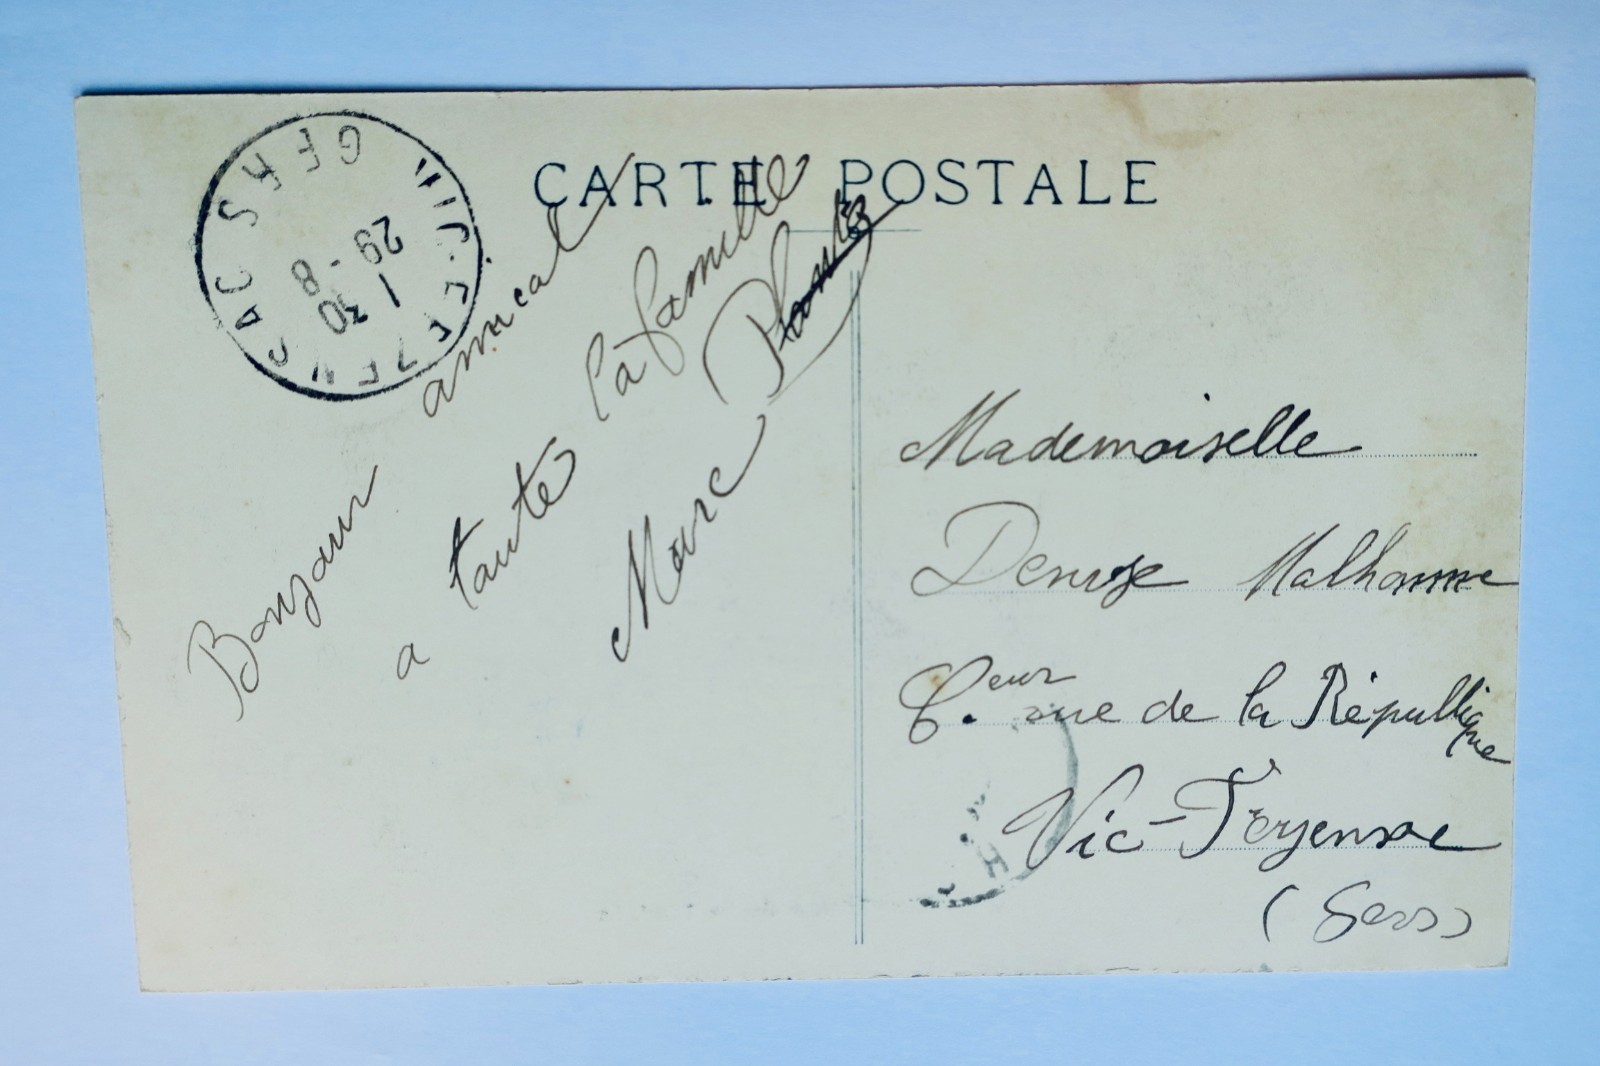 CARTE POSTALE
VIC-FEZENSAC GERS
1 30
29 - 8
Bonjour amical
a toute la famille
Marc
Mademoiselle
Denise Malhomme
rue de la République
Vic-Fezensac
(Gers)